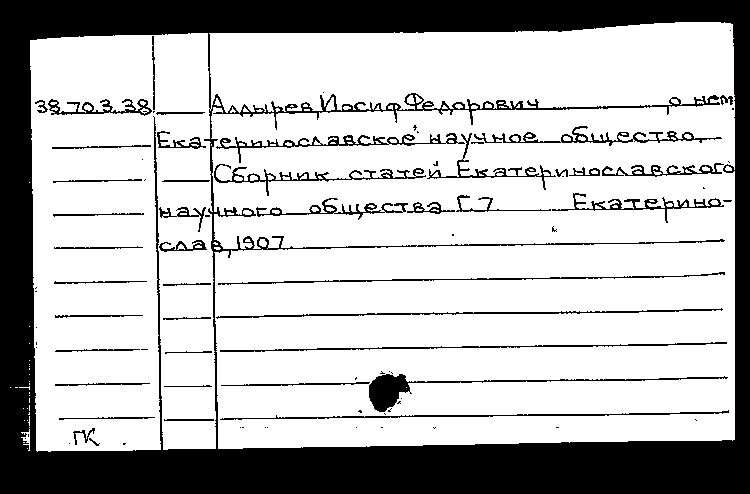 38.70.3.38 Алдырев, Иосиф Федорович , о нем
Екатеринославское научное общество.
Сборник статей Екатеринославского
научного общества Г.7 Екатерино-
слав, 1907.
ГК